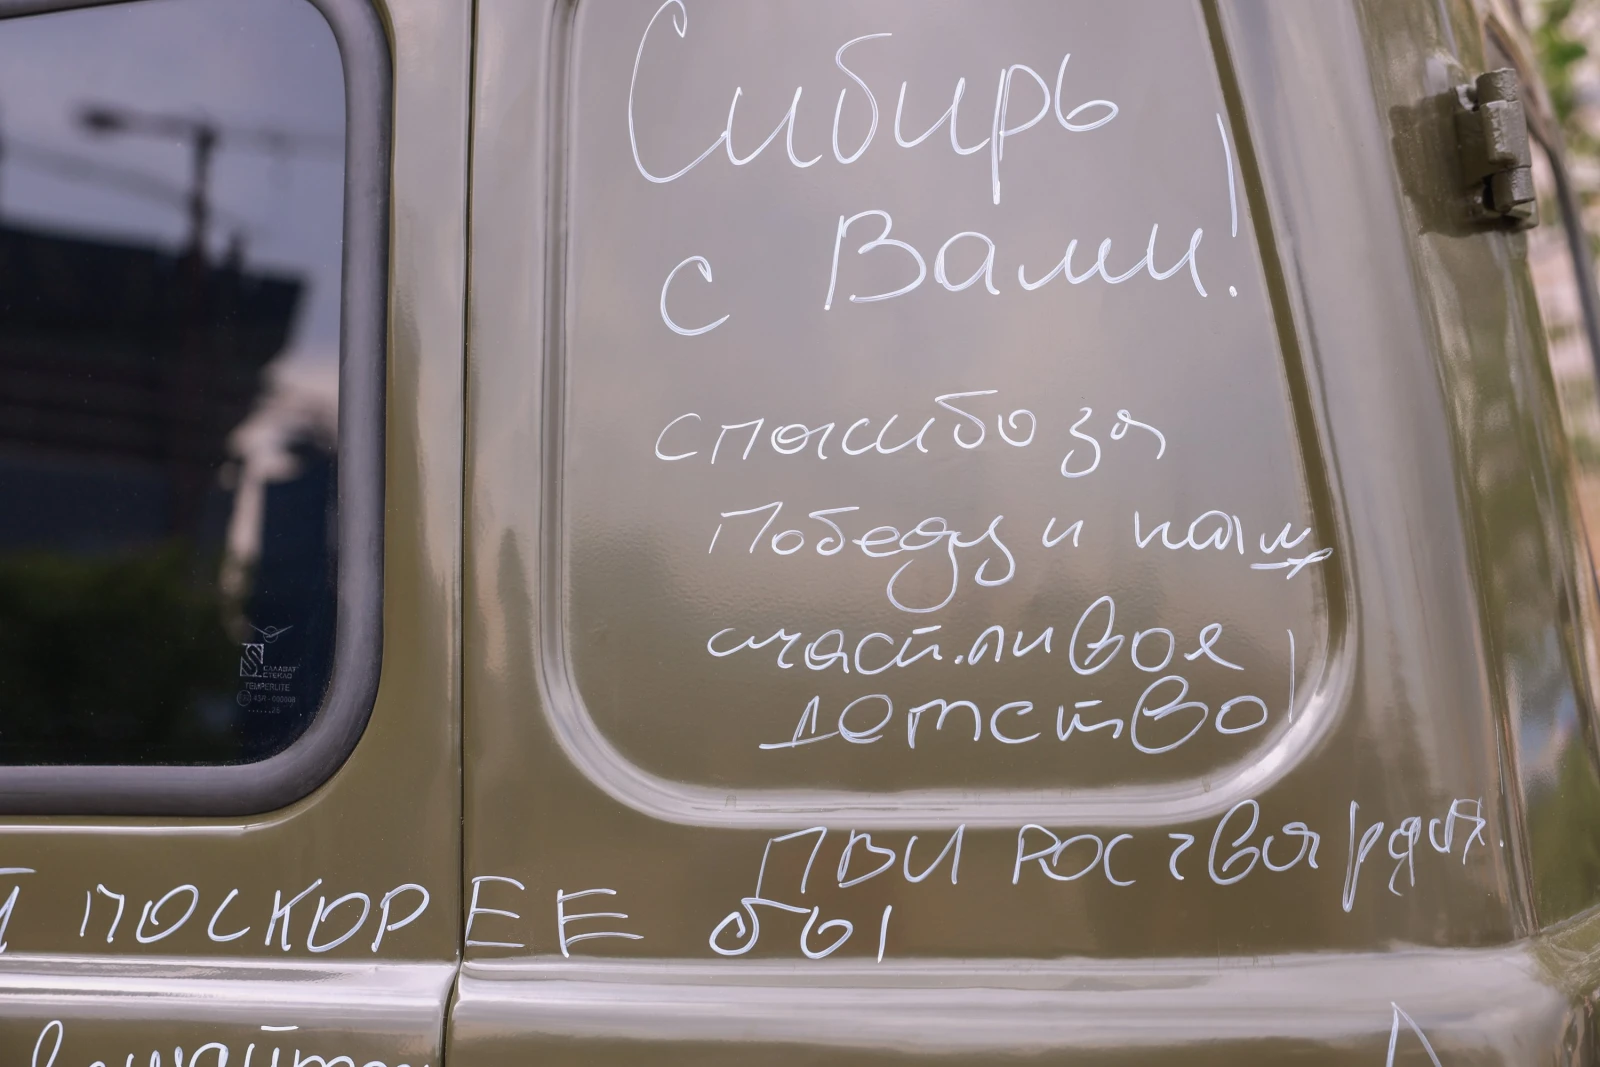 Сибирь
с Вами!
спасибо за
Победу и наше
счастливое
детство!
ПВИ Росгвардия.
ПОСКОРЕЕ бы
САЛАВАТ
СТЕКЛО
TEMPERLITE